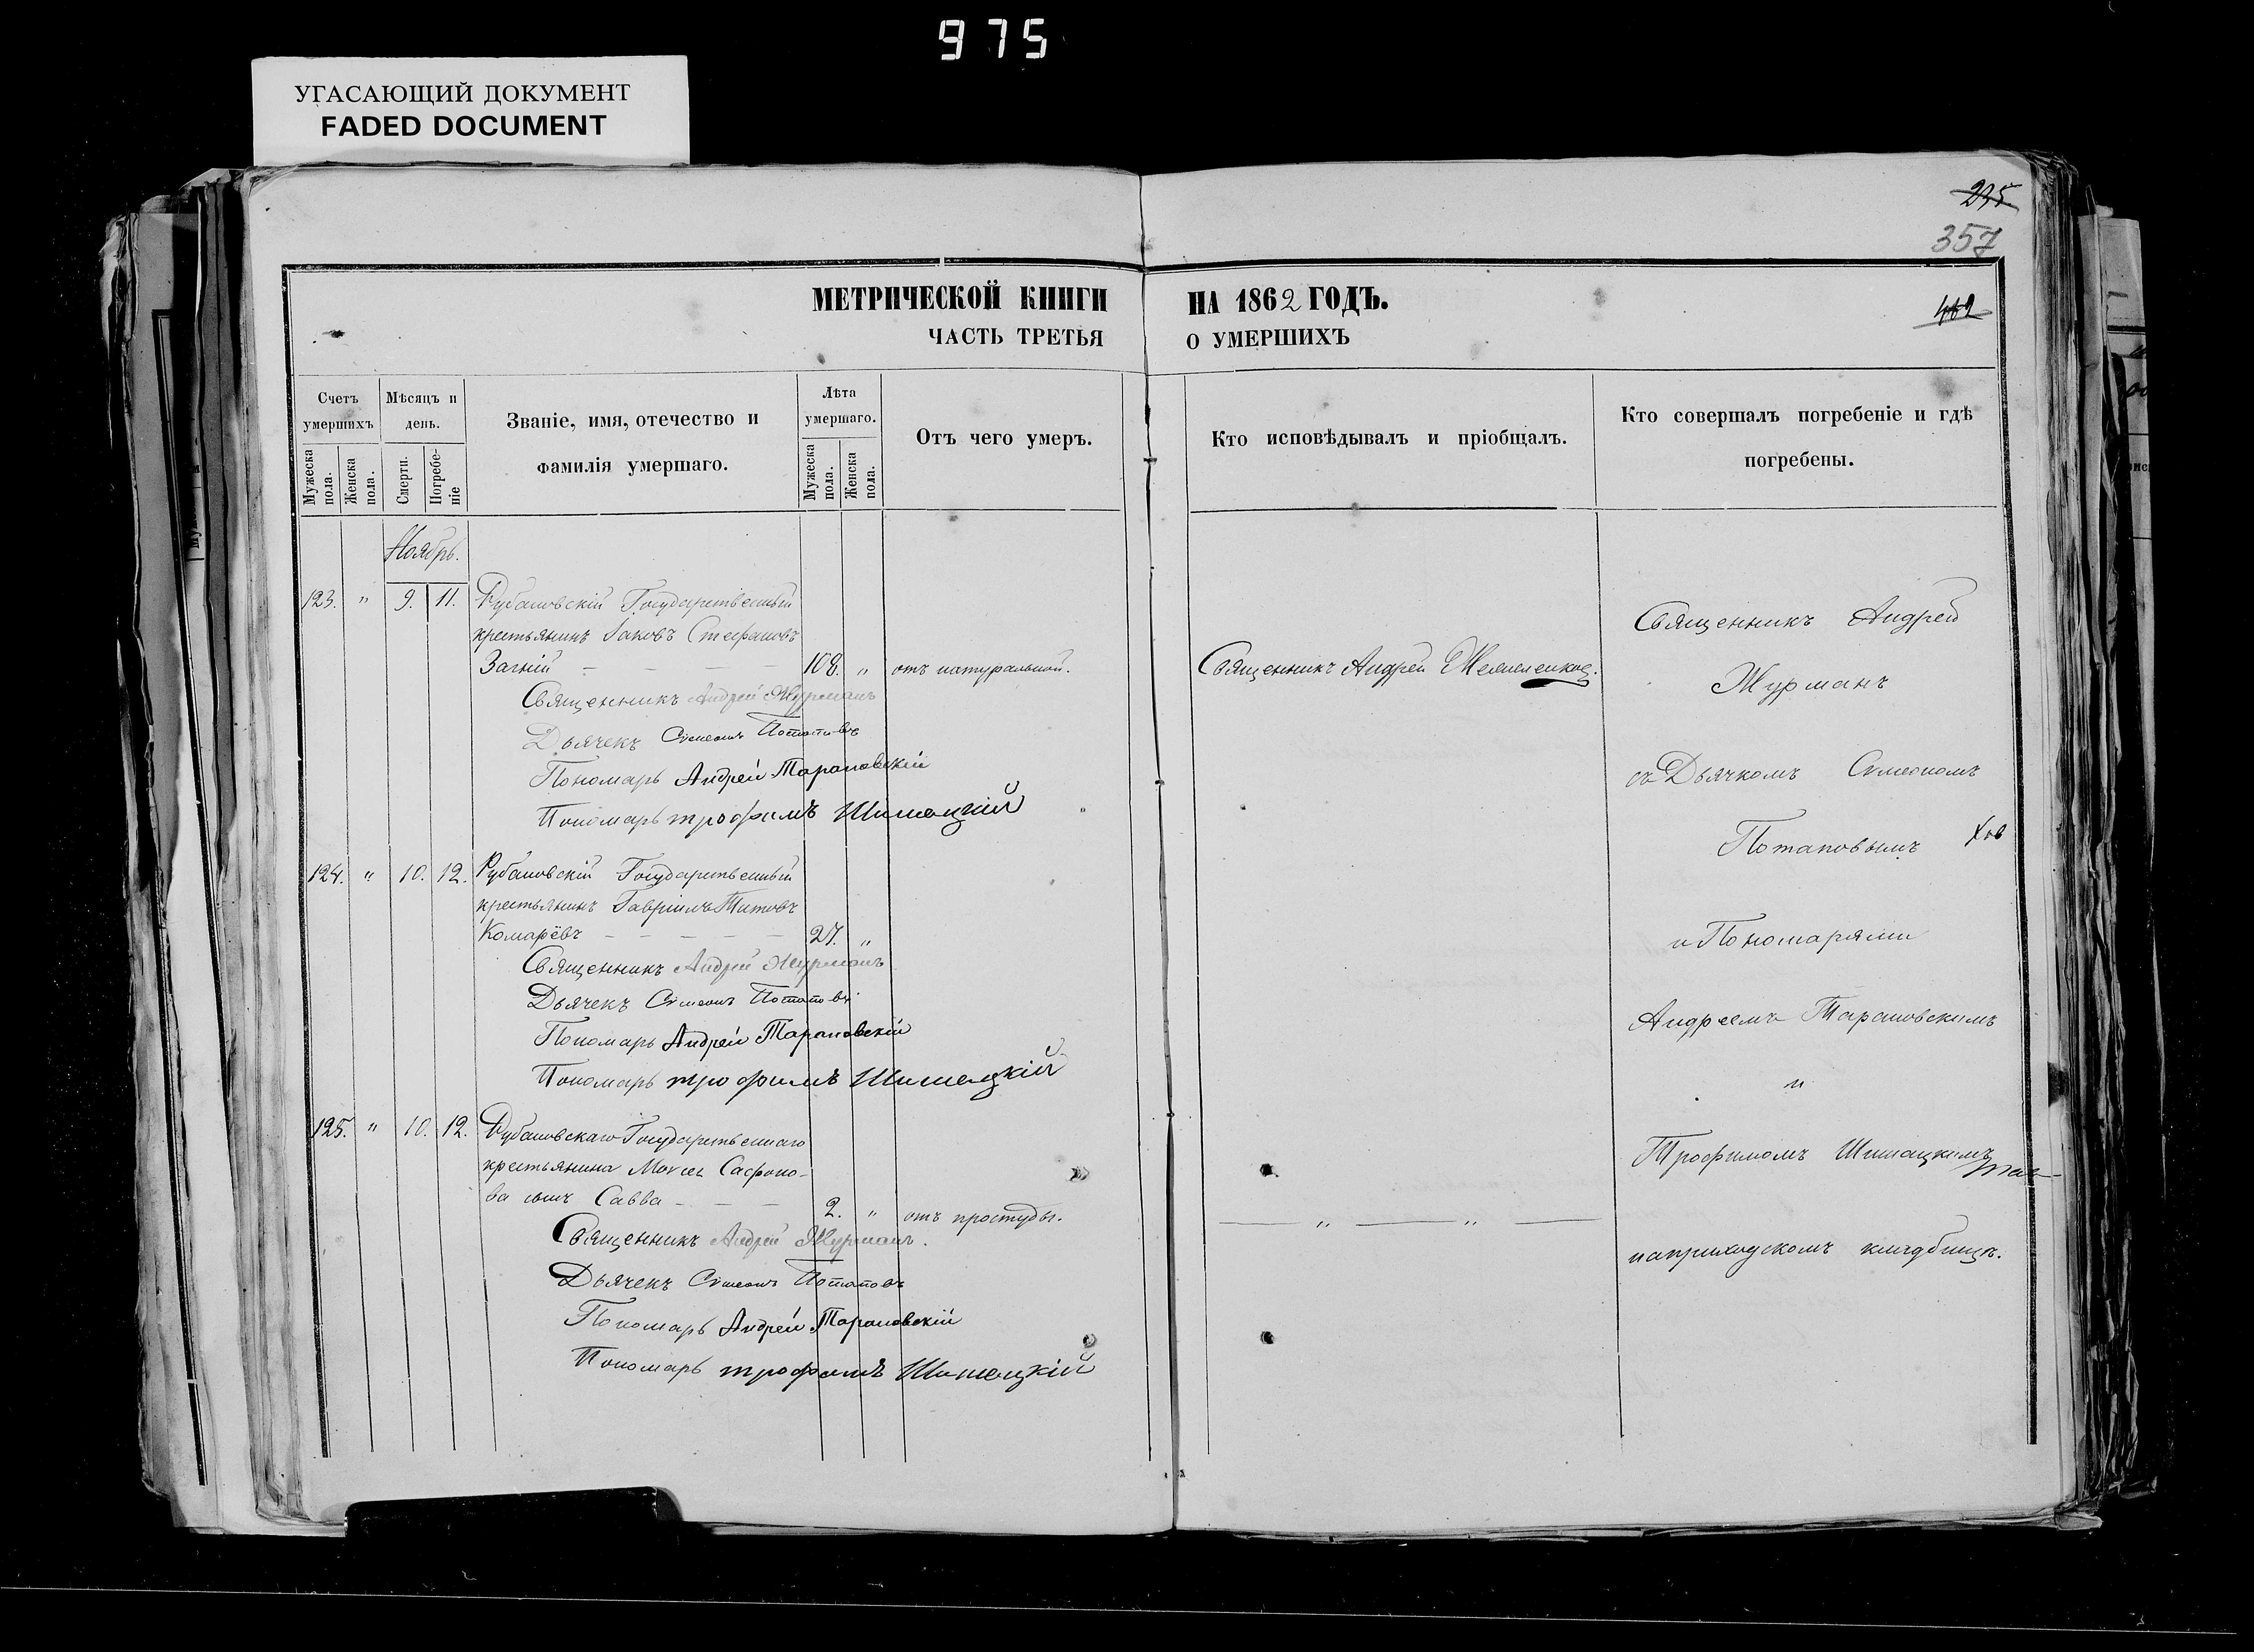 975
УГАСАЮЩИЙ ДОКУМЕНТ
FADED DOCUMENT
295
357
МЕТРИЧЕСКОЙ КНИГИ НА 1862 ГОДЪ.
ЧАСТЬ ТРЕТЬЯ О УМЕРШИХЪ
Счетъ умершихъ
Мужеска пола.
Женска пола.
Мѣсяцъ и день.
Смерти.
Погребе-ніе
Званіе, имя, отечество и
фамилія умершаго.
Лѣта умершаго.
Мужеска пола.
Женска пола.
Отъ чего умеръ.
Кто исповѣдывалъ и пріобщалъ.
Кто совершалъ погребеніе и гдѣ
погребены.
Ноябрь.
123. " 9. 11. Рубановскій Государственный
крестьянинъ Іаковъ Стефановъ
Загній — — — — 108. " отъ натуральной. Священникъ Андрей
Священникъ Андрей Журманъ
Дьячекъ Симеонъ Потаповъ
Пономарь Андрей Тарановскій
Пономарь трофимъ Шишацкій
124. " 10. 12. Рубановскій Государственный
крестьянинъ Гавріилъ Титовъ
Комарёвъ — — — — — 27. "
Священникъ Андрей Журманъ
Дьячекъ Симеонъ Потаповъ
Пономарь Андрей Тарановскій
Пономарь трофимъ Шишацкій
125. " 10. 12. Рубановскаго Государственнаго
крестьянина Моисея Сафоно-
ва сынъ Савва — — — 2. " отъ простуды. — " — " —
Священникъ Андрей Журманъ.
Дьячекъ Симеонъ Потаповъ
Пономарь Андрей Тарановскій
Пономарь трофимъ Шишацкій
Священникъ Андрей
Журманъ
съ Дьячкомъ Симеономъ
Потаповымъ
и Пономарями
Андреемъ Тарановскимъ
и
Трофимомъ Шишацкимъ
наприходскомъ кладбищѣ.